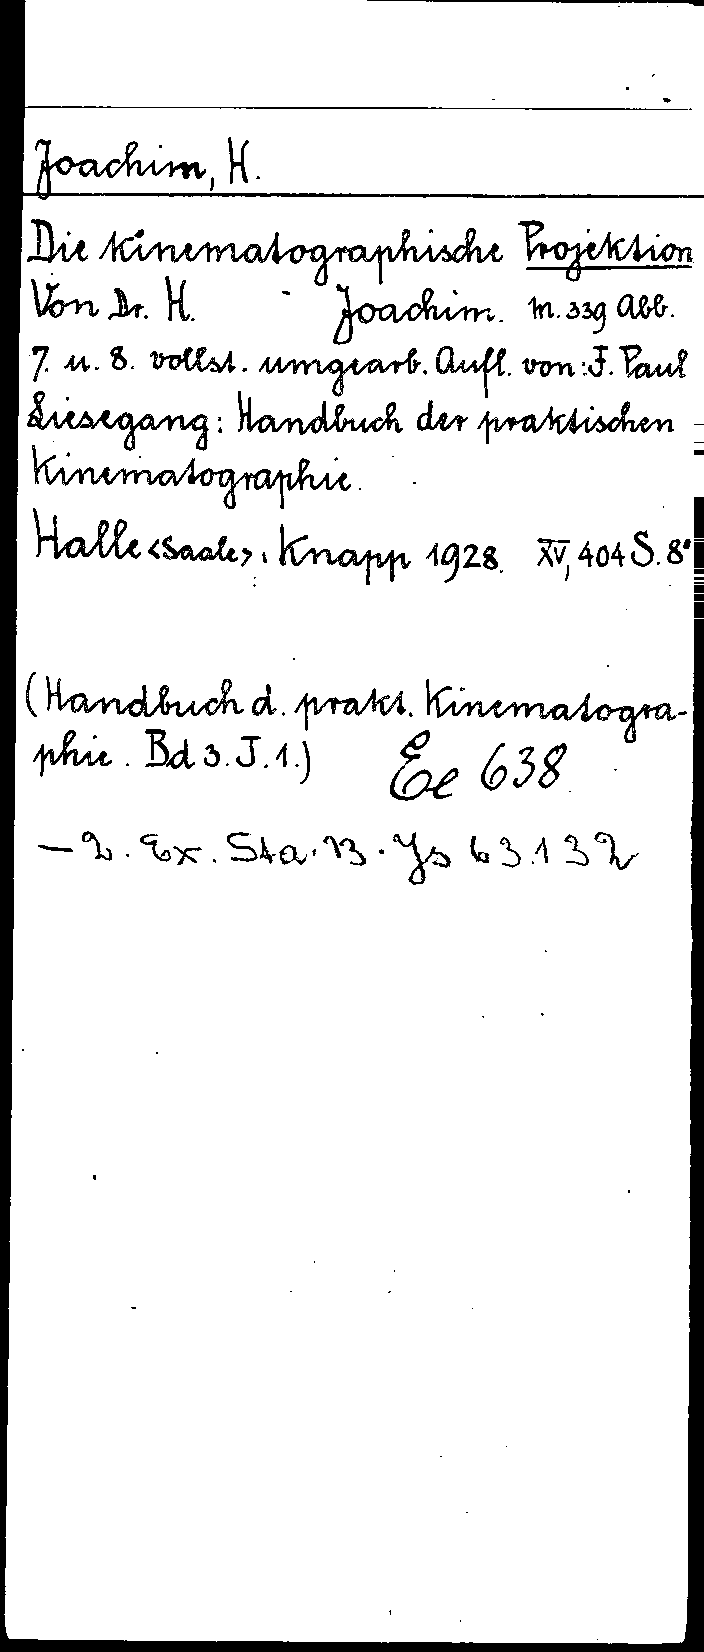 Joachim, H.
Die kinematographische Projektion
Von Dr. H. Joachim. m. 339 Abb.
7. u. 8. vollst. umgearb. Aufl. von: F. Paul
Liesegang: Handbuch der praktischen
Kinematographie.
Halle <Saale>: Knapp 1928. XV, 404 S. 8°
(Handbuch d. prakt. Kinematogra-
phie. Bd 3. T. 1.) Ee 638
— 2. Ex. Sta. B. Ys 63.132